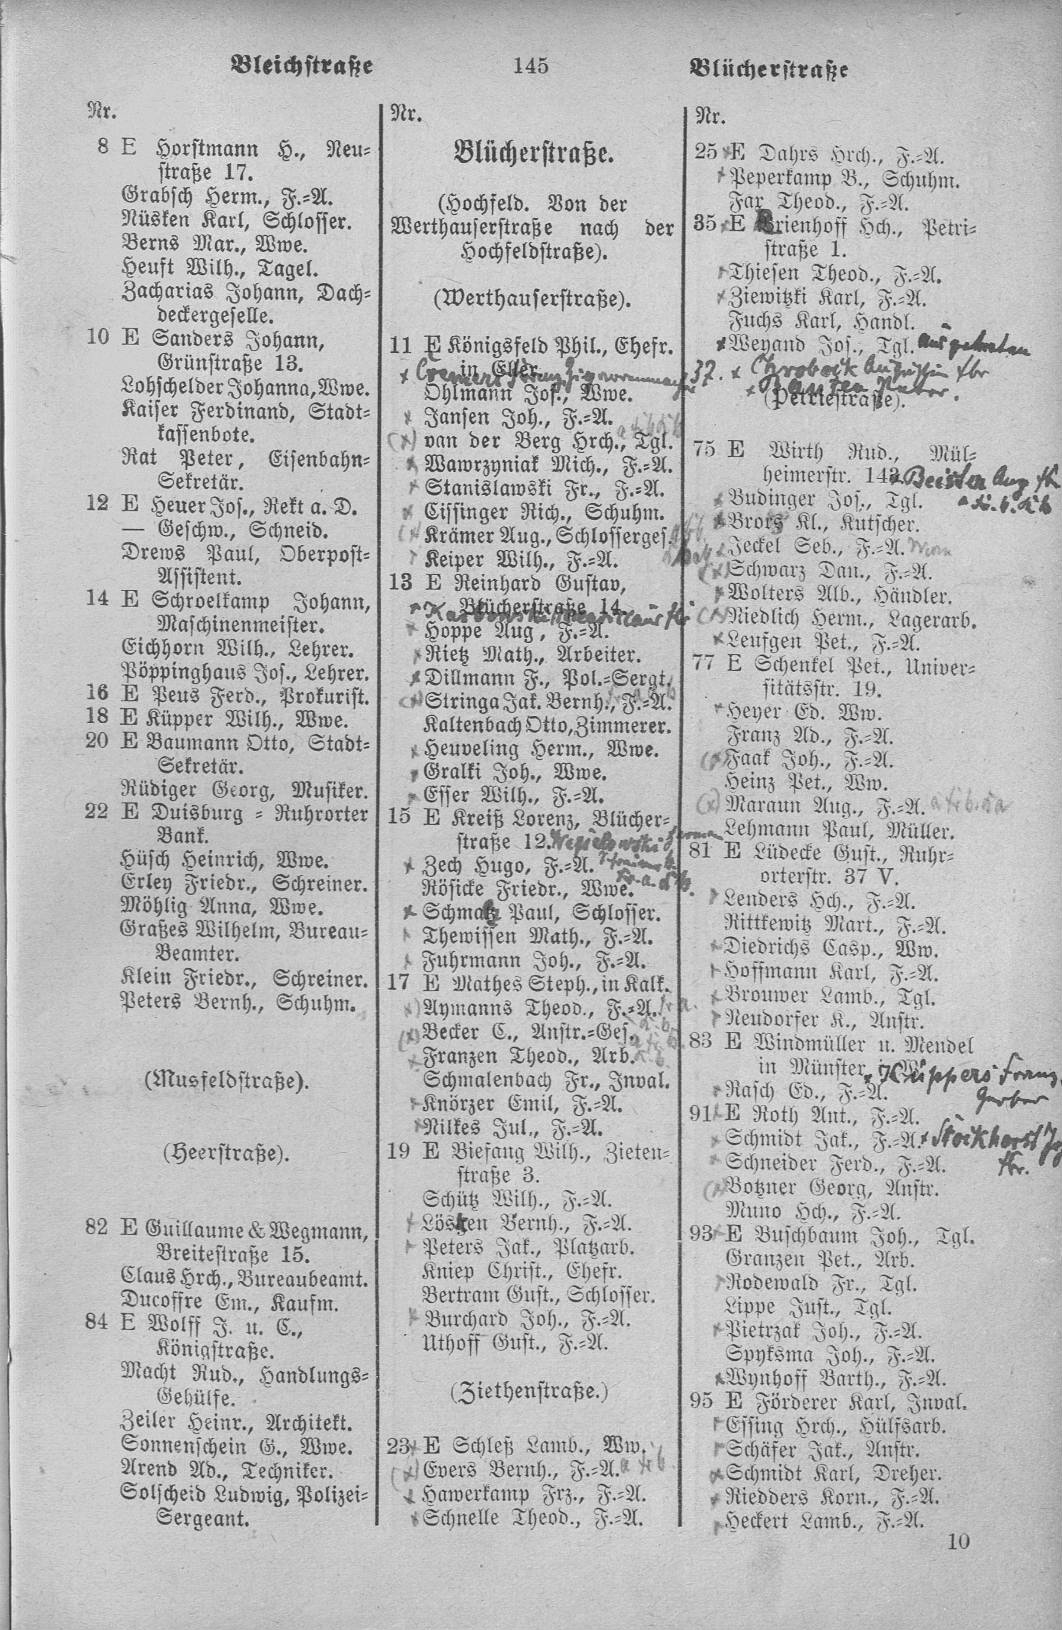 Bleichstraße 145 Blücherstraße
Nr.
8 E Horstmann H., Neu-
straße 17.
Grabsch Herm., F.-A.
Nüsken Karl, Schlosser.
Berns Mar., Wwe.
Heuft Wilh., Tagel.
Zacharias Johann, Dach-
deckergeselle.
10 E Sanders Johann,
Grünstraße 13.
Lohschelder Johanna, Wwe.
Kaiser Ferdinand, Stadt-
kassenbote.
Rat Peter, Eisenbahn-
Sekretär.
12 E Heuer Jos., Rekt a. D.
— Geschw., Schneid.
Drews Paul, Oberpost-
Assistent.
14 E Schroelkamp Johann,
Maschinenmeister.
Eichhorn Wilh., Lehrer.
Pöppinghaus Jos., Lehrer.
16 E Peus Ferd., Prokurist.
18 E Küpper Wilh., Wwe.
20 E Baumann Otto, Stadt-
Sekretär.
Rüdiger Georg, Musiker.
22 E Duisburg-Ruhrorter
Bank.
Hüsch Heinrich, Wwe.
Erley Friedr., Schreiner.
Möhlig Anna, Wwe.
Graßes Wilhelm, Bureau-
Beamter.
Klein Friedr., Schreiner.
Peters Bernh., Schuhm.
(Musfeldstraße).
(Heerstraße).
82 E Guillaume & Wegmann,
Breitestraße 15.
Claus Hrch., Bureaubeamt.
Ducoffre Em., Kaufm.
84 E Wolff J. u. C.,
Königstraße.
Macht Rud., Handlungs-
Gehülfe.
Zeiler Heinr., Architekt.
Sonnenschein G., Wwe.
Arend Ad., Techniker.
Solscheid Ludwig, Polizei-
Sergeant.
Nr.
Blücherstraße.
(Hochfeld. Von der
Werthauserstraße nach der
Hochfeldstraße).
(Werthauserstraße).
11 E Königsfeld Phil., Ehefr.
in Eller.
Ohlmann Jos., Wwe.
Jansen Joh., F.-A.
van der Berg Hrch., Tgl.
Wawrzyniak Mich., F.-A.
Stanislawski Fr., F.-A.
Cissinger Rich., Schuhm.
Krämer Aug., Schlosserges.
Keiper Wilh., F.-A.
13 E Reinhard Gustav,
Blücherstraße 14.
Hoppe Aug, F.-A.
Rietz Math., Arbeiter.
Dillmann F., Pol.-Sergt.
Stringa Jak. Bernh., F.-A.
Kaltenbach Otto, Zimmerer.
Heuveling Herm., Wwe.
Gralki Joh., Wwe.
Esser Wilh., F.-A.
15 E Kreiß Lorenz, Blücher-
straße 12.
Zech Hugo, F.-A.
Rösicke Friedr., Wwe.
Schmatz Paul, Schlosser.
Thewissen Math., F.-A.
Fuhrmann Joh., F.-A.
17 E Mathes Steph., in Kalk.
Aymanns Theod., F.-A.
Becker C., Anstr.-Ges.
Franzen Theod., Arb.
Schmalenbach Fr., Inval.
Knörzer Emil, F.-A.
Nilkes Jul., F.-A.
19 E Biefang Wilh., Zieten-
straße 3.
Schütz Wilh., F.-A.
Lösken Bernh., F.-A.
Peters Jak., Platzarb.
Kniep Christ., Ehefr.
Bertram Gust., Schlosser.
Burchard Joh., F.-A.
Uthoff Gust., F.-A.
(Ziethenstraße.)
23 E Schleß Lamb., Ww.
Evers Bernh., F.-A.
Hawerkamp Frz., F.-A.
Schnelle Theod., F.-A.
Nr.
25 E Dahrs Hrch., F.-A.
Peperkamp B., Schuhm.
Fax Theod., F.-A.
35 E Brienhoff Hch., Petri-
straße 1.
Thiesen Theod., F.-A.
Ziewitzki Karl, F.-A.
Fuchs Karl, Handl.
Weyand Jos., Tgl.
37.
(Petriestraße).
75 E Wirth Rud., Mül-
heimerstr. 143
Budinger Jos., Tgl.
Brors Kl., Kutscher.
Jeckel Seb., F.-A.
Schwarz Dan., F.-A.
Wolters Alb., Händler.
Riedlich Herm., Lagerarb.
Leufgen Pet., F.-A.
77 E Schenkel Pet., Univer-
sitätsstr. 19.
Heyer Ed. Ww.
Franz Ad., F.-A.
Faak Joh., F.-A.
Heinz Pet., Ww.
Maraun Aug., F.-A.
Lehmann Paul, Müller.
81 E Lüdecke Gust., Ruhr-
orterstr. 37 V.
Lenders Hch., F.-A.
Rittkewitz Mart., F.-A.
Diedrichs Casp., Ww.
Hoffmann Karl, F.-A.
Brouwer Lamb., Tgl.
Neudorfer K., Anstr.
83 E Windmüller u. Mendel
in Münster i. W.
Küppers Franz
Gerber
Rasch Ed., F.-A.
91 E Roth Ant., F.-A.
Schmidt Jak., F.-A. Stockhorst
Schneider Ferd., F.-A.
Botzner Georg, Anstr.
Muno Hch., F.-A.
93 E Buschbaum Joh., Tgl.
Granzen Pet., Arb.
Rodewald Fr., Tgl.
Lippe Just., Tgl.
Pietrzak Joh., F.-A.
Spyksma Joh., F.-A.
Wynhoff Barth., F.-A.
95 E Förderer Karl, Inval.
Essing Hrch., Hülfsarb.
Schäfer Jak., Anstr.
Schmidt Karl, Dreher.
Riedders Korn., F.-A.
Heckert Lamb., F.-A.
10